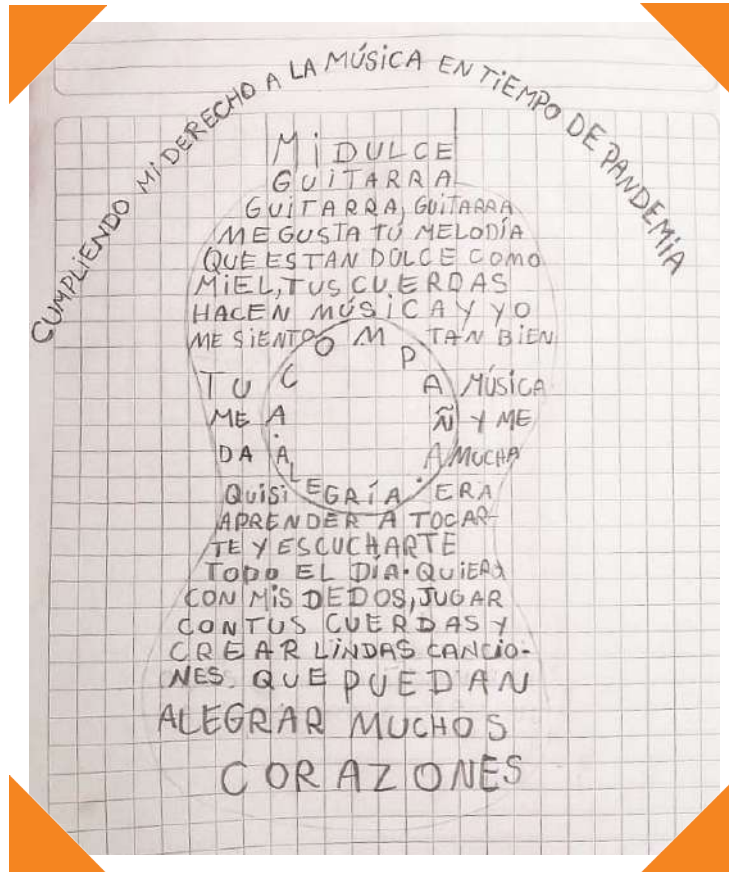 CUMPLIENDO MI DERECHO A LA MÚSICA EN TIEMPO DE PANDEMIA
MI DULCE
GUITARRA
GUITARRA, GUITARRA
ME GUSTA TÚ MELODÍA
QUE ES TAN DULCE COMO
MIEL, TUS CUERDAS
HACEN MÚSICA Y YO
ME SIENTO TAN BIEN
TU MÚSICA
ME ACOMPAÑA Y ME
DA MUCHA
ALEGRÍA.
QUISIERA
APRENDER A TOCAR-
TE Y ESCUCHARTE
TODO EL DÍA. QUIERO
CON MIS DEDOS, JUGAR
CON TUS CUERDAS Y
CREAR LINDAS CANCIO-
NES QUE PUEDAN
ALEGRAR MUCHOS
CORAZONES